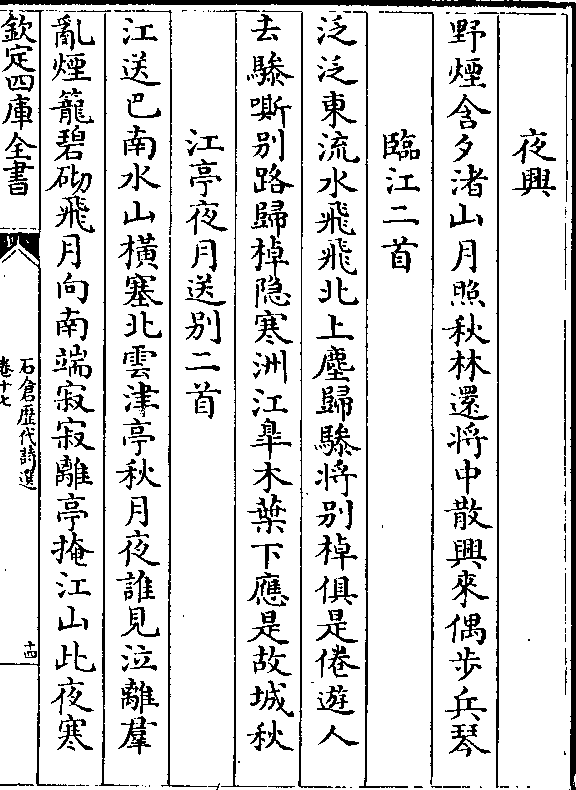 夜興
野煙含夕渚山月照秋林還將中散興來偶步兵琴
臨江二首
泛泛東流水飛飛北上塵歸驂將别棹俱是倦遊人
去驂嘶别路歸棹隐寒洲江臯木葉下應是故城秋
江亭夜月送别二首
江送巴南水山横塞北雲津亭秋月夜誰見泣離羣
亂煙籠碧砌飛月向南端寂寂離亭掩江山此夜寒
欽定四庫全書
石倉歴代詩選
卷十七
十四